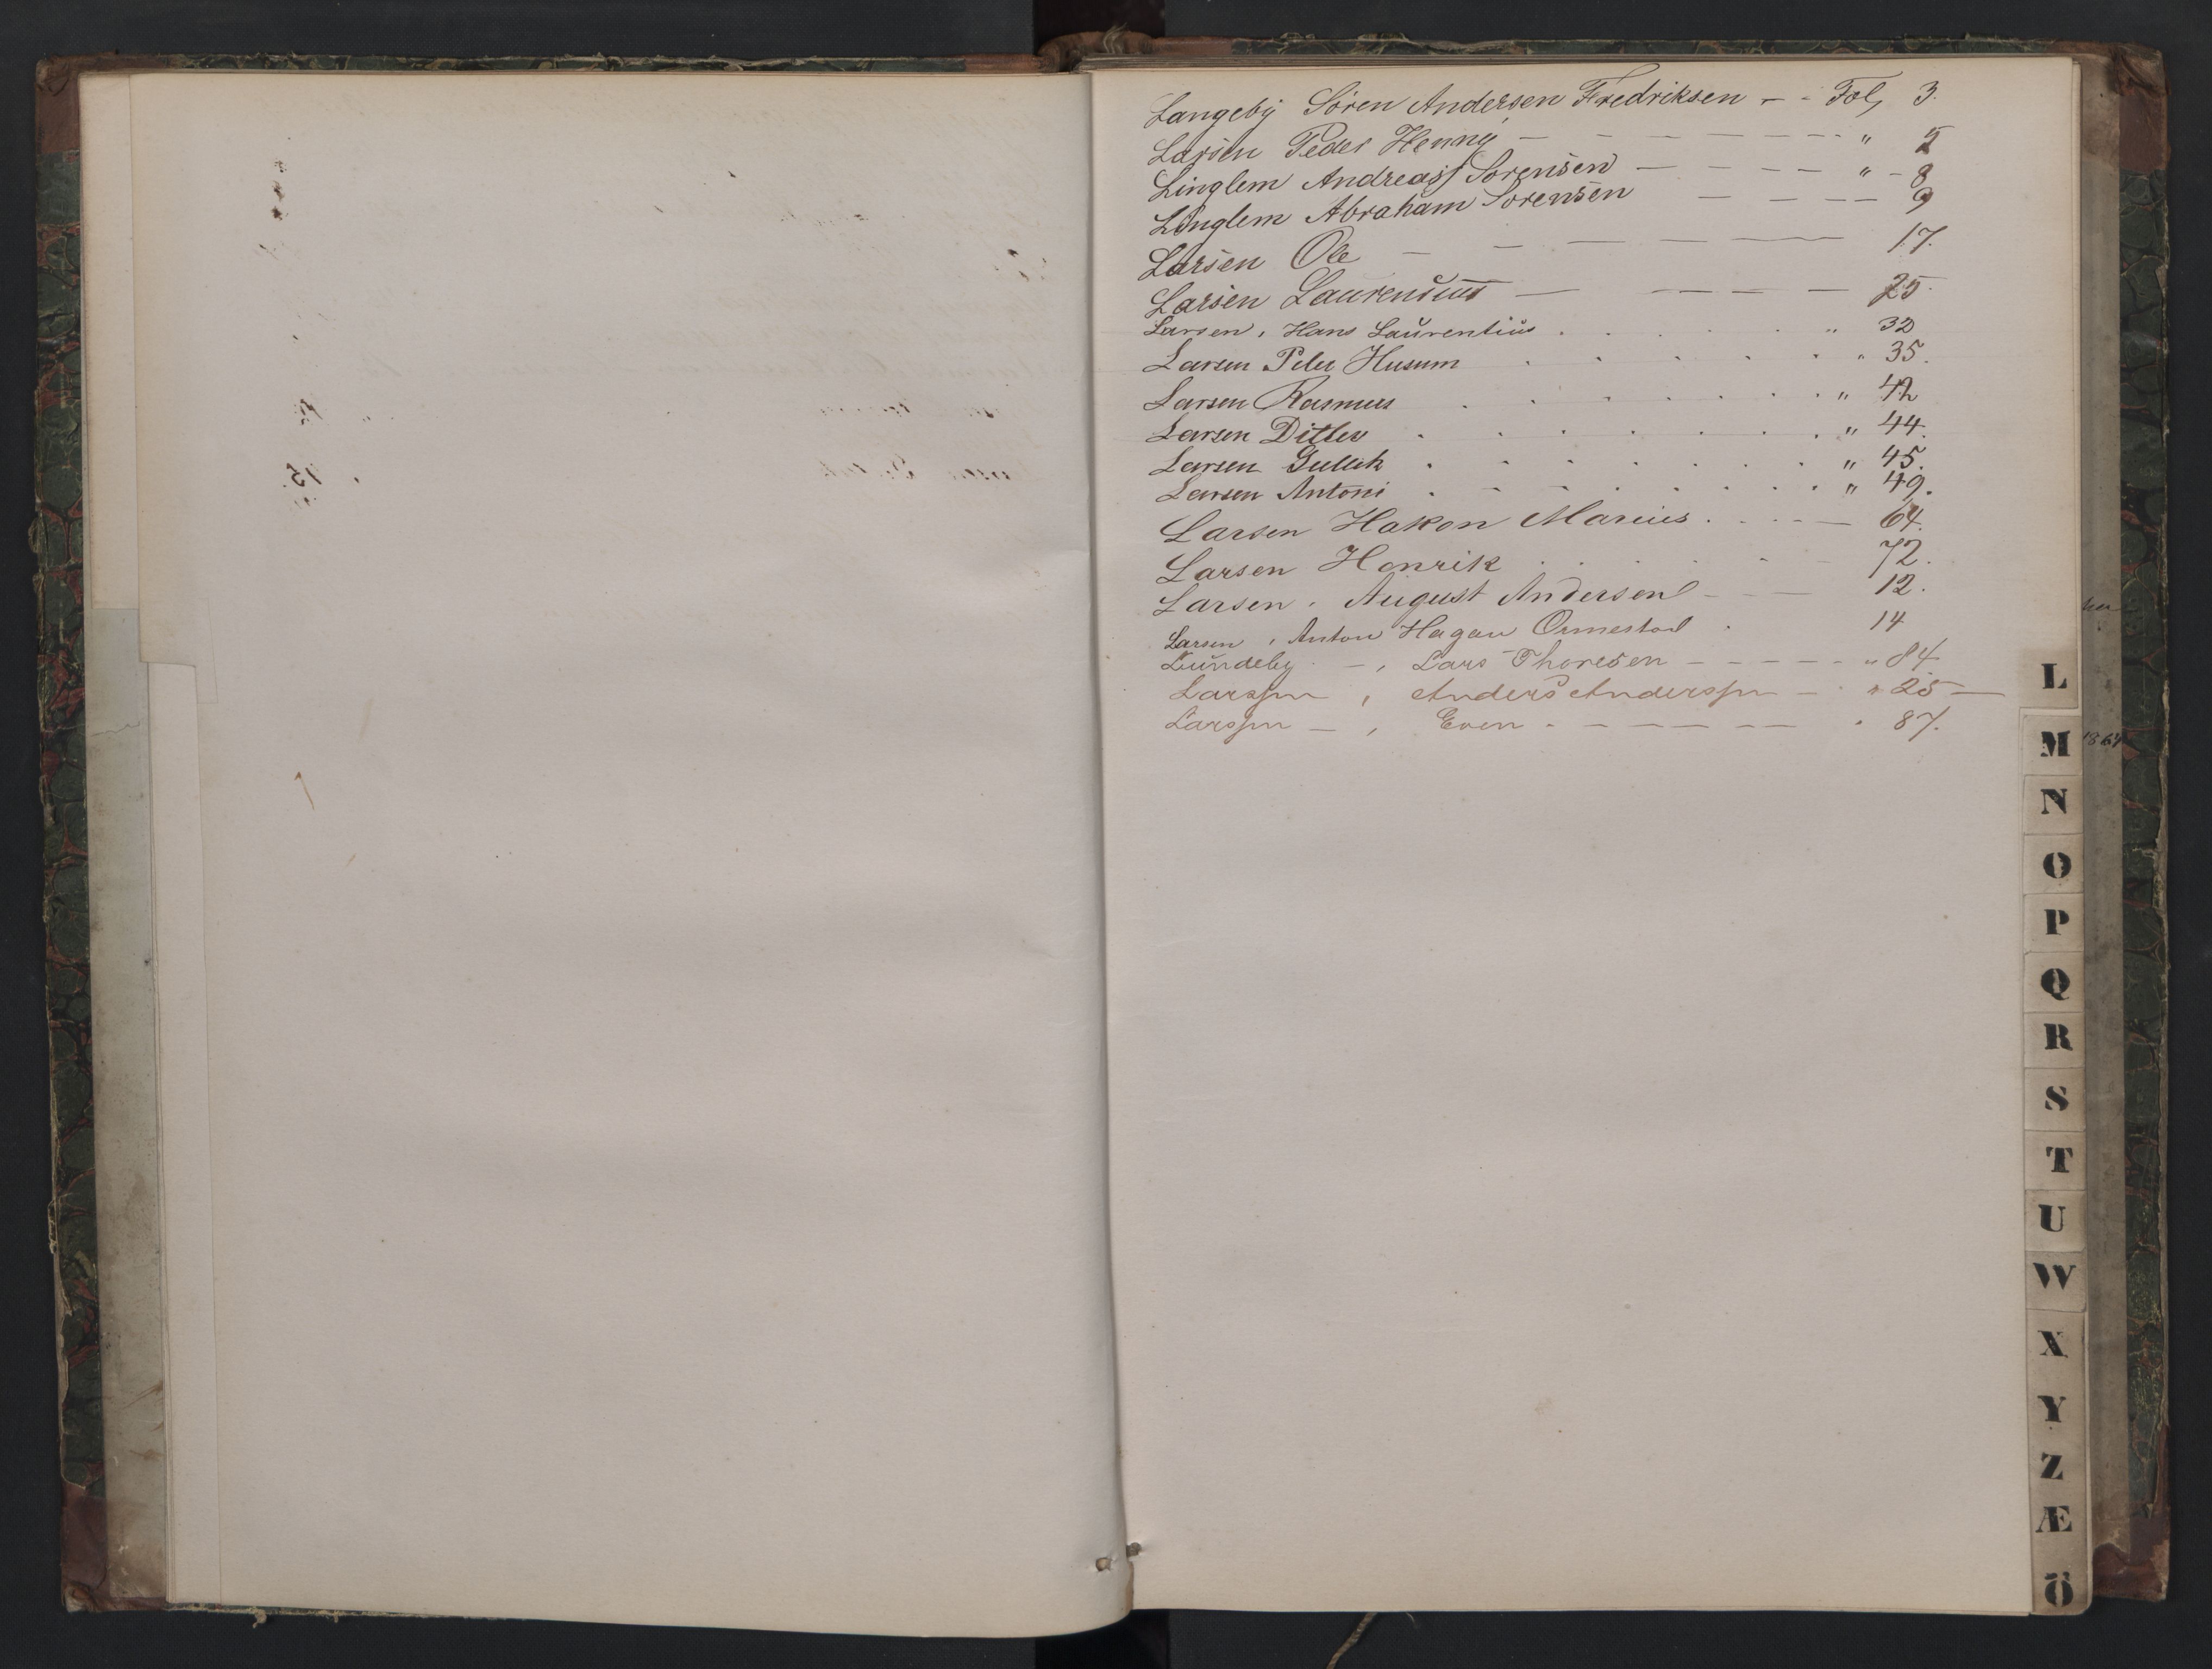 Langeby Sören Andersen Fredriksen - - Fol, 3.
Larsen Peder Henny - - - - - - - " 5
Linglem Andreass Sorensen - - - - " - 8
Linglem Abraham Sorensen - - - - 9
Larsen Ole - - - - 17.
Larsen Laurensius - - - - - 25.
Larsen, Hans Laurentius . . . . . " 32
Larsen Peter Husum . . . . . " 35.
Larsen Rasmus . . . . . . . " 42
Larsen Ditlev . . . . . . . " 44.
Larsen Gullik . . . . . . . " 45.
Larsen Antoni . . . . . . . . " 49.
Larsen Hakon Marius . . . - - 64.
Larsen Henrik . . . . - - 72.
Larsen, August Andersen - - - 12.
Larsen, Anton Hagan Ormestad . 14
Lundeby - , Lars Thoresen - - - - - " 84
Larssen , Anders Anderssen - - " 25 -
Larssen - , Even - - - - - - . 87.
L
M
1864
N
O
P
Q
R
S
T
U
W
X
Y
Z
Æ
Ö